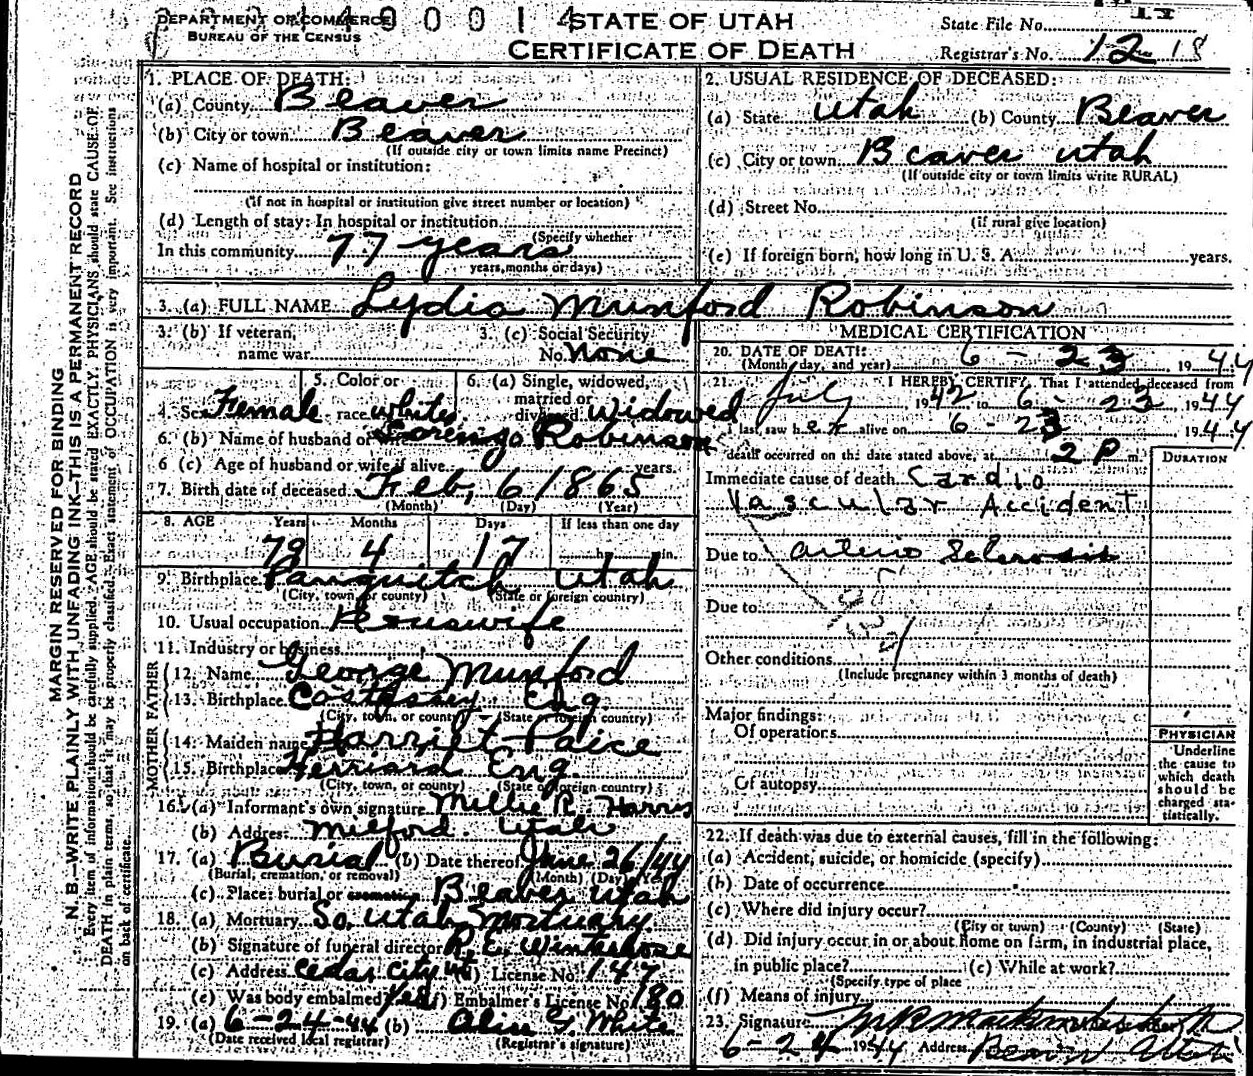 DEPARTMENT OF COMMERCE
BUREAU OF THE CENSUS
STATE OF UTAH
CERTIFICATE OF DEATH
State File No.
Registrar's No. 12 18
MARGIN RESERVED FOR BINDING
N. B.—WRITE PLAINLY WITH UNFADING INK—THIS IS A PERMANENT RECORD
Every item of information should be carefully supplied. AGE should be stated EXACTLY. PHYSICIANS should state CAUSE OF
DEATH in plain terms, so that it may be properly classified. Exact statement of OCCUPATION is very important. See instructions
on back of certificate.
1. PLACE OF DEATH:
(a) County Beaver
(b) City or town Beaver
(If outside city or town limits name Precinct)
(c) Name of hospital or institution:
(If not in hospital or institution give street number or location)
(d) Length of stay: In hospital or institution
(Specify whether
In this community 77 years
years, months or days)
2. USUAL RESIDENCE OF DECEASED:
(a) State Utah (b) County Beaver
(c) City or town Beaver Utah
(If outside city or town limits write RURAL)
(d) Street No.
(if rural give location)
(e) If foreign born, how long in U. S. A. years.
3. (a) FULL NAME Lydia Munford Robinson
3. (b) If veteran, name war
3. (c) Social Security No. None
4. Sex Female
5. Color or race white
6. (a) Single, widowed, married or divorced Widowed
6. (b) Name of husband or wife Lorenzo Robinson
6 (c) Age of husband or wife if alive years.
7. Birth date of deceased Feb, 6 1865
(Month) (Day) (Year)
8. AGE Years Months Days If less than one day
79 4 17 h. in.
9. Birthplace Panguitch Utah
(City, town, or county) (State or foreign country)
10. Usual occupation Housewife
11. Industry or business
FATHER
12. Name George Munford
13. Birthplace Costessey Eng.
(City, town, or county) (State or foreign country)
MOTHER
14. Maiden name Harriet Paice
15. Birthplace Herriard Eng.
(City, town, or county) (State or foreign country)
16. (a) Informant's own signature Millie R. Harris
(b) Address Milford. Utah
17. (a) Burial (b) Date thereof June 26/44
(Burial, cremation, or removal) (Month) (Day) (Year)
(c) Place: burial or cremation Beaver Utah
18. (a) Mortuary So. Utah Mortuary
(b) Signature of funeral director
(c) Address Cedar City Ut License No. 147
(e) Was body embalmed Yes (f) Embalmer's License No. 180
19. (a) 6-24-44 (b) Alice G. White
(Date received local registrar) (Registrar's signature)
MEDICAL CERTIFICATION
20. DATE OF DEATH: 6 - 23 1944
(Month, day, and year)
21. I HEREBY CERTIFY, That I attended deceased from
July 1942 to 6 - 23 1944
I last saw her alive on 6 - 23 1944
death occurred on the date stated above, at 2 P m.
DURATION
Immediate cause of death Cardio
Vascular Accident
Due to arterio Sclerosis
Due to
Other conditions
(Include pregnancy within 3 months of death)
Major findings:
Of operations
Of autopsy
PHYSICIAN
Underline
the cause to
which death
should be
charged sta-
tistically.
22. If death was due to external causes, fill in the following:
(a) Accident, suicide, or homicide (specify)
(b) Date of occurrence
(c) Where did injury occur?
(City or town) (County) (State)
(d) Did injury occur in or about home on farm, in industrial place,
in public place? (e) While at work?
(Specify type of place
(f) Means of injury
23. Signature
6-24 1944 Address Beaver Utah